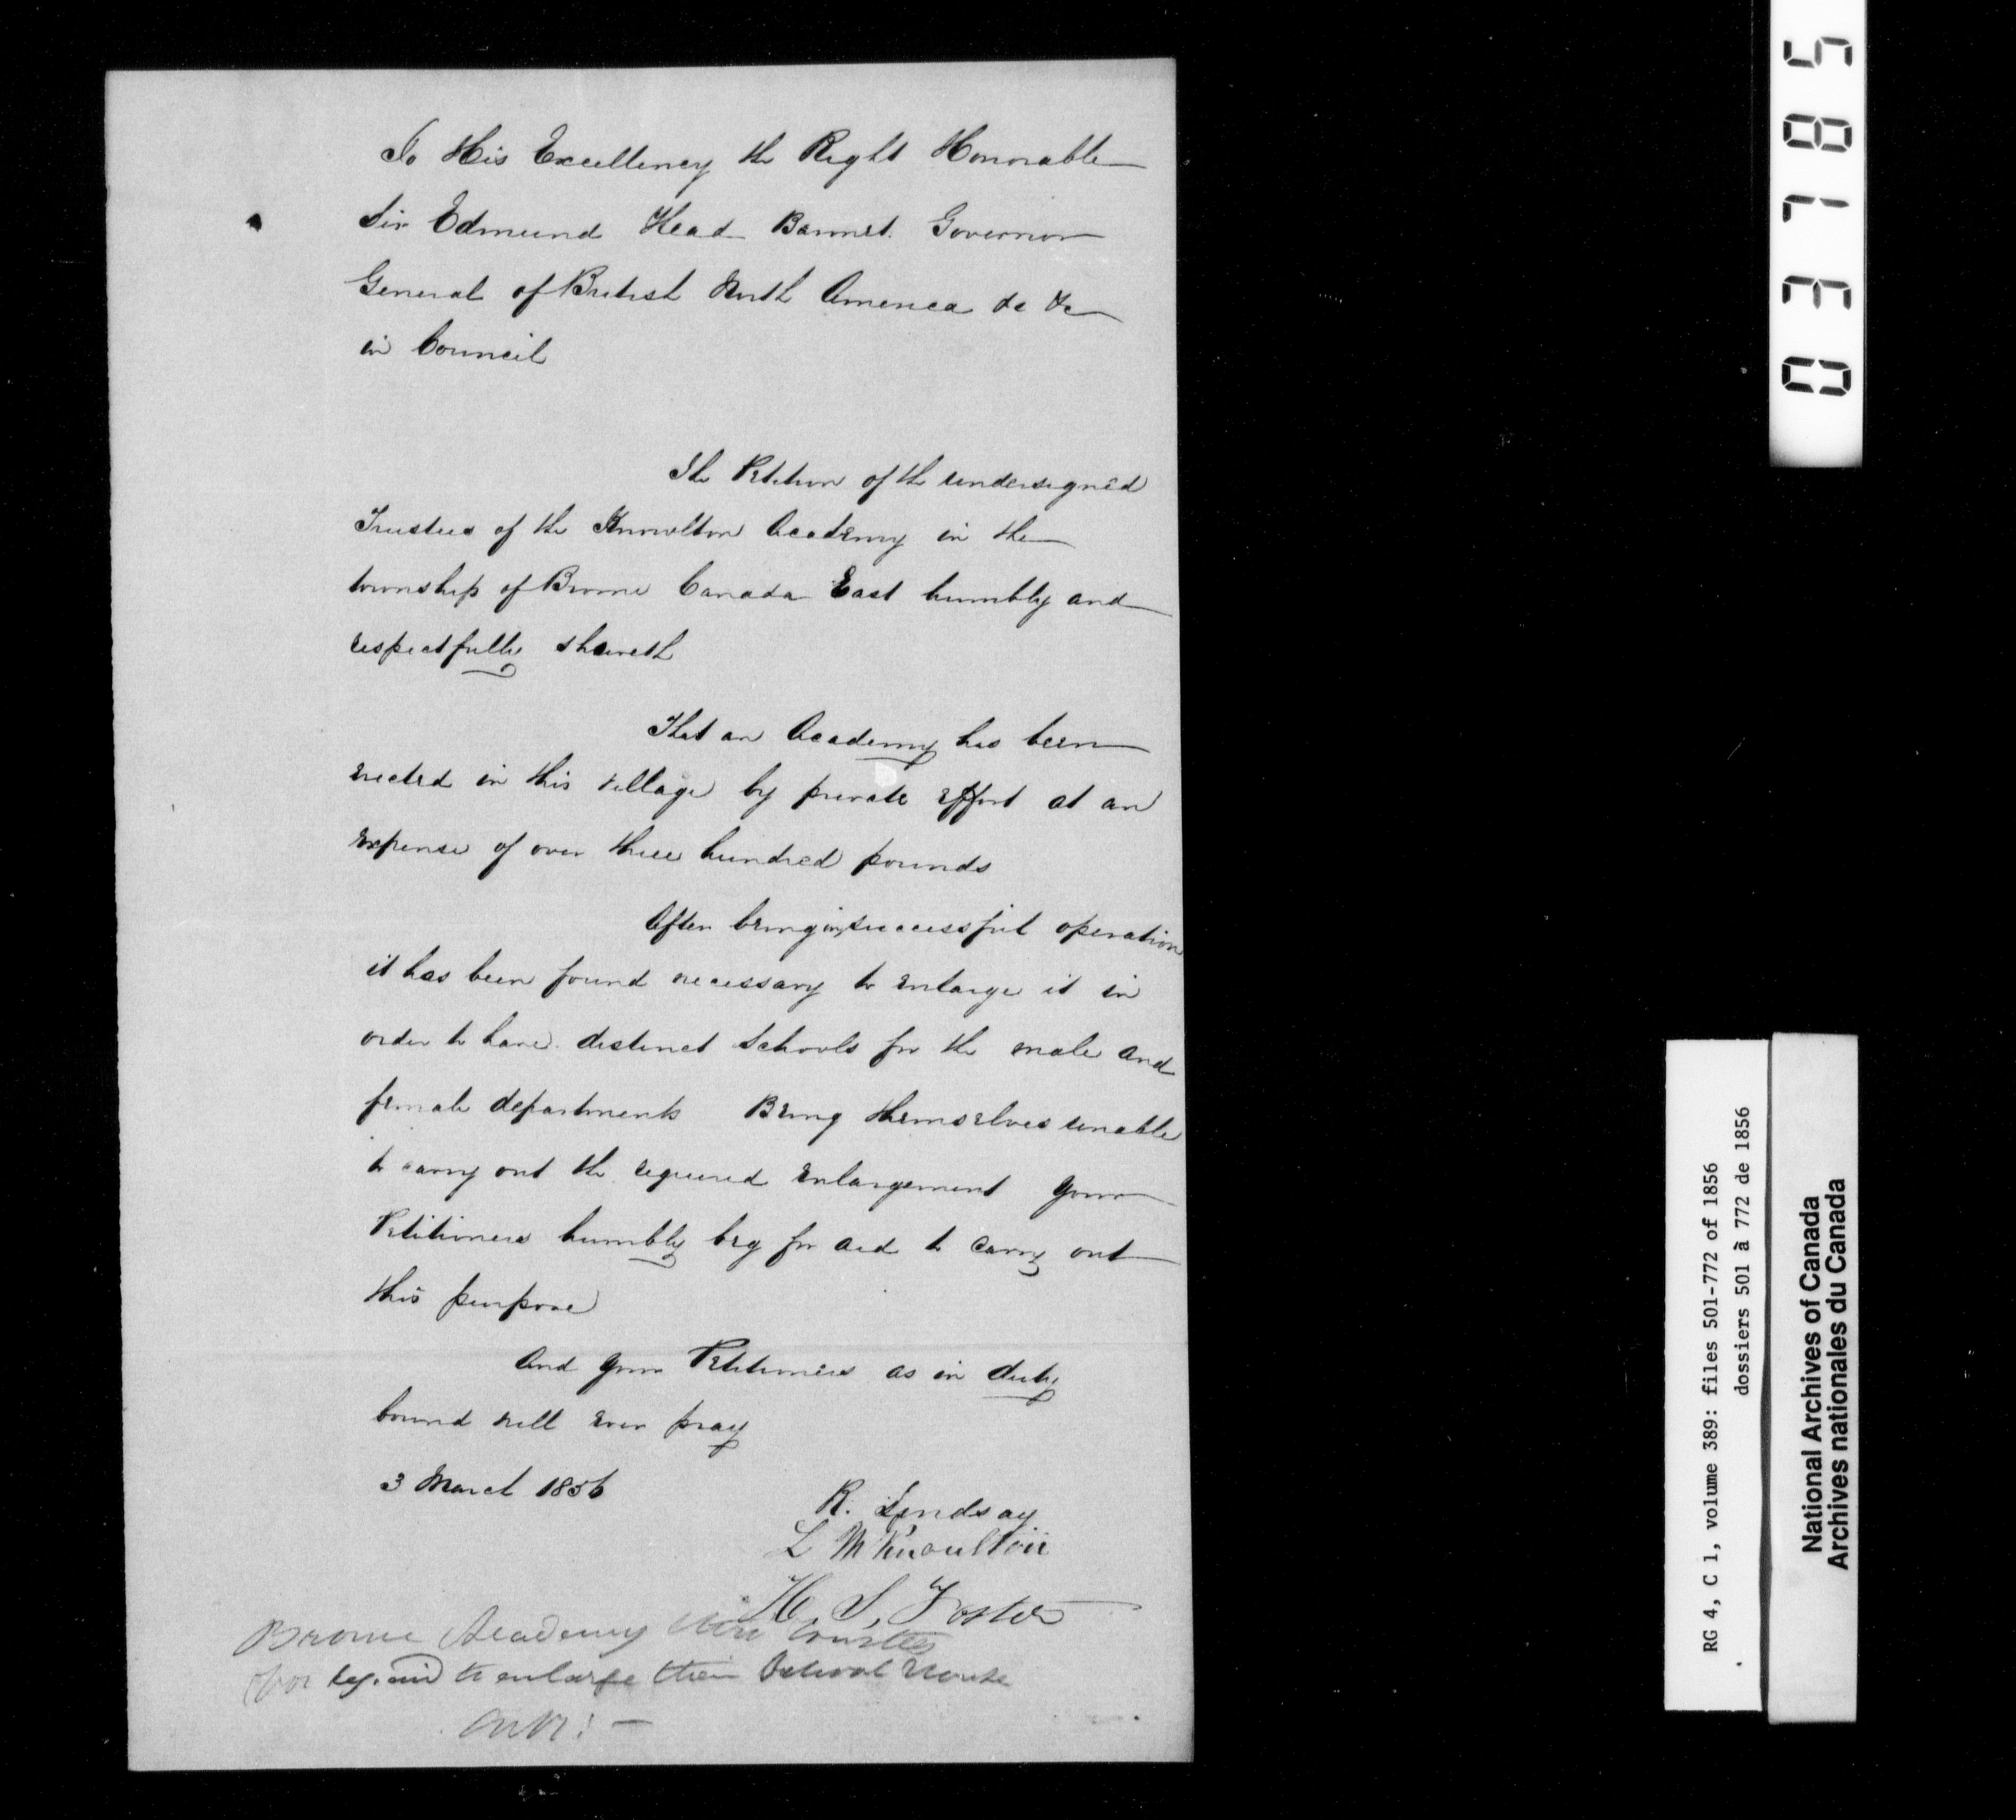 To His Excellency the Right Honorable
Sir Edmund Head Baronet. Governor
General of British North America &c &c
in Council
The Petition of the undersigned
Trustees of the Knowlton Academy in the
township of Brome Canada East humbly and
respectfully sheweth
That an Academy has been
erected in this village by private effort at an
expense of over three hundred pounds
After being in successful operation
it has been found necessary to enlarge it in
order to have distinct Schools for the male and
female departments Being themselves unable
to carry out the required enlargement your
Petitioners humbly beg for aid to carry out
this purpose
And your Petitioners as in duty
bound will ever pray
3 March 1856
R. Lindsay
L M Knoulton
H. S. Foster
Brome Academy Trustees
for leg. aid to enlarge their School House
5
8
1
3
0
RG 4, C 1, volume 389: files 501-772 of 1856
dossiers 501 à 772 de 1856
National Archives of Canada
Archives nationales du Canada